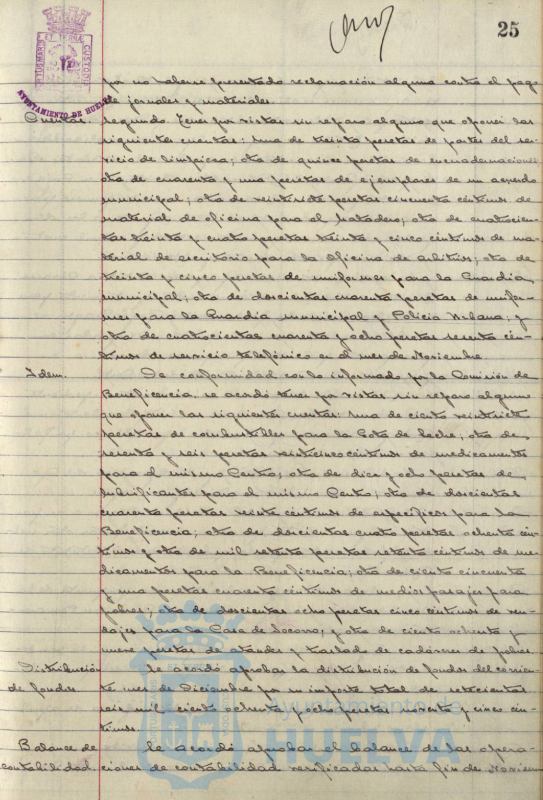 25
AYUNTAMIENTO DE HUELVA
por no haberse presentado reclamación alguna contra el pago
de jornales y materiales.
Cuentas. Segundo. Tener por vistas sin reparo alguno que oponer las
siguientes cuentas: Una de treinta pesetas de portes del ser-
vicio de limpieza; otra de quince pesetas de encuadernaciones
otra de cuarenta y una pesetas de ejemplares de un acuerdo
municipal; otra de veintisiete pesetas cincuenta céntimos de
material de oficina para el Matadero; otra de cuatrocien-
tas treinta y cuatro pesetas treinta y cinco céntimos de ma-
terial de escritorio para la Oficina de arbitrios; otra de
treinta y cinco pesetas de uniformes para la Guardia
municipal; otra de doscientas cuarenta pesetas de unifor-
mes para la Guardia municipal y Policía Urbana; y
otra de cuatrocientas cuarenta y ocho pesetas sesenta cén-
timos de servicio telefónico en el mes de Noviembre.
Idem. De conformidad con lo informado por la Comisión de
Beneficencia, se acordó tener por vistas sin reparo alguno
que oponer las siguientes cuentas: Una de ciento veintisiete
pesetas de combustibles para la Gota de leche; otra de
sesenta y seis pesetas veinticinco céntimos de medicamentos
para el mismo Centro; otra de diez y ocho pesetas de
lubrificantes para el mismo Centro; otra de doscientas
cuarenta pesetas veinte céntimos de específicos para la
Beneficencia; otra de doscientas cuatro pesetas ochenta cén-
timos y otra de mil setenta pesetas setenta céntimos de me-
dicamentos para la Beneficencia; otra de ciento cincuenta
y una pesetas cuarenta céntimos de medios pasajes para
pobres; otra de doscientas ocho pesetas cinco céntimos de ven-
dajes para la Casa de Socorro; y otra de ciento ochenta y
nueve pesetas de ataudes y traslado de cadáveres de pobres.
Distribución Se acordó aprobar la distribución de fondos del corrien-
de fondos te mes de Diciembre por un importe total de setecientas
seis mil ciento ochenta y ocho pesetas noventa y cinco cén-
timos.
Balance de Se acordó aprobar el balance de las opera-
contabilidad. ciones de contabilidad verificadas hasta fin de Noviem-
Ayuntamiento de
HUELVA